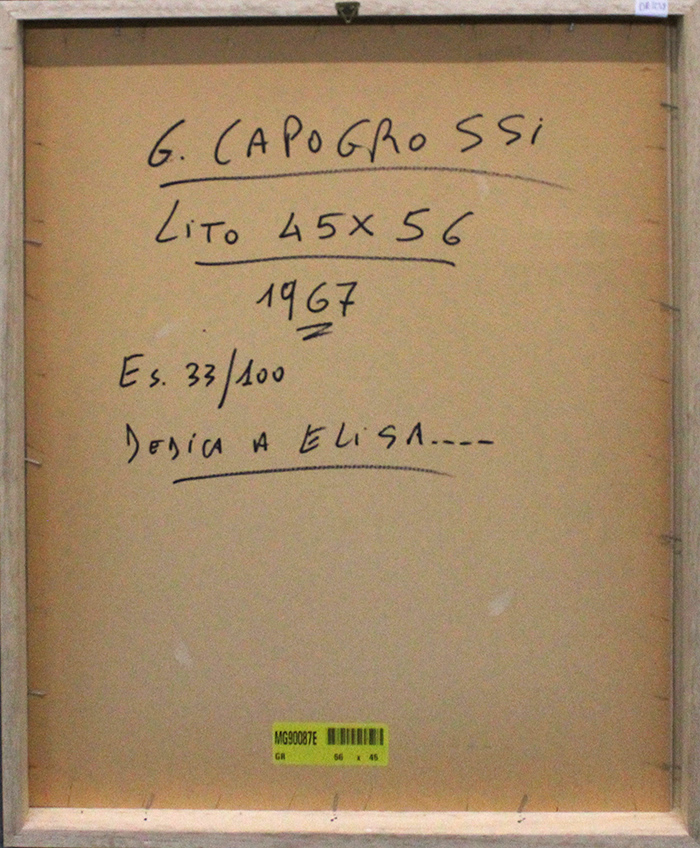 G. CAPOGROSSI
LiTO 45X56
1967
Es. 33/100
DEDiCA A ELiSA....
MG90087E
GR 56 x 45